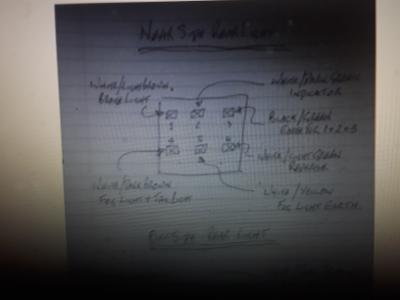 NEAR SIDE REAR LIGHT
WHITE/LIGHT BROWN
BRAKE LIGHT
WHITE/DARK GREEN
INDICATOR
BLACK/GREEN
EARTH FOR 1+2+3
1 2 3
4 5 6
WHITE/LIGHT GREEN
REVERSE
WHITE/DARK BROWN
FOG LIGHT + TAIL LIGHT
WHITE/YELLOW
FOG LIGHT EARTH
SIDE REAR LIGHT